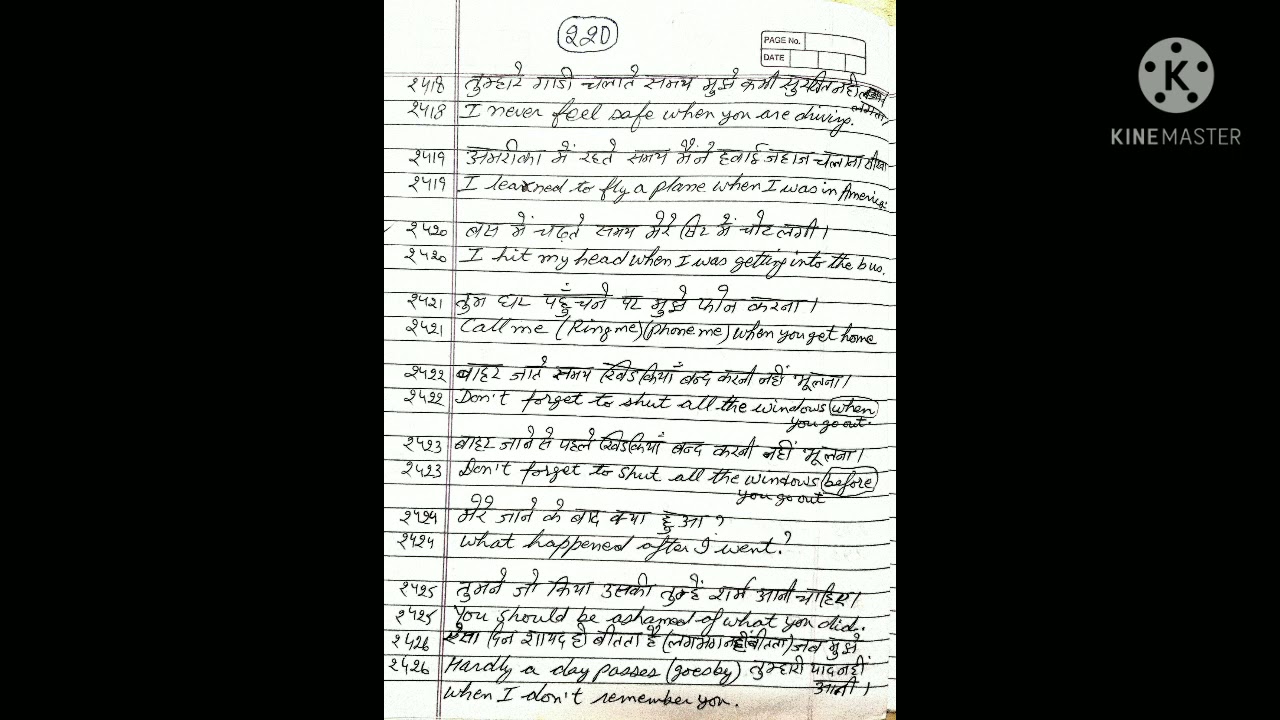 220
PAGE No.
DATE
2418 तुम्हारे गाडी चलाते समय मुझे कभी सुरक्षित नही
लगता।
2418 I never feel safe when you are driving.
2419 अमरीका में रहते समय मैंने हवाई जहाज चलाना सीखा
2419 I learned to fly a plane when I was in America.
2420 बस में चढ़ते समय मेरे सिर में चोट लगी।
2420 I hit my head when I was getting into the bus.
2421 तुम घर पहुँचने पर मुझे फोन करना।
2421 Call me (Ring me) (phone me) when you get home
2422 बाहर जाते समय खिडकियाँ बन्द करनी नहीं भूलना।
2422 Don't forget to shut all the windows when
you go out.
2423 बाहर जाने से पहले खिडकियाँ बन्द करनी नहीं भूलना।
2423 Don't forget to shut all the windows before
you go out
2424 मेरे जाने के बाद क्या हुआ ?
2424 What happened after I went?
2425 तुमने जो किया उसकी तुम्हें शर्म आनी चाहिए।
2425 You should be ashamed of what you did.
2426 ऐसा दिन शायद ही बीतता है (लगभग नहीं बीतता) जब मुझे
2426 Hardly a day passes (goesby) तुम्हारी याद नहीं
आती।
when I don't remember you.
K
KINEMASTER